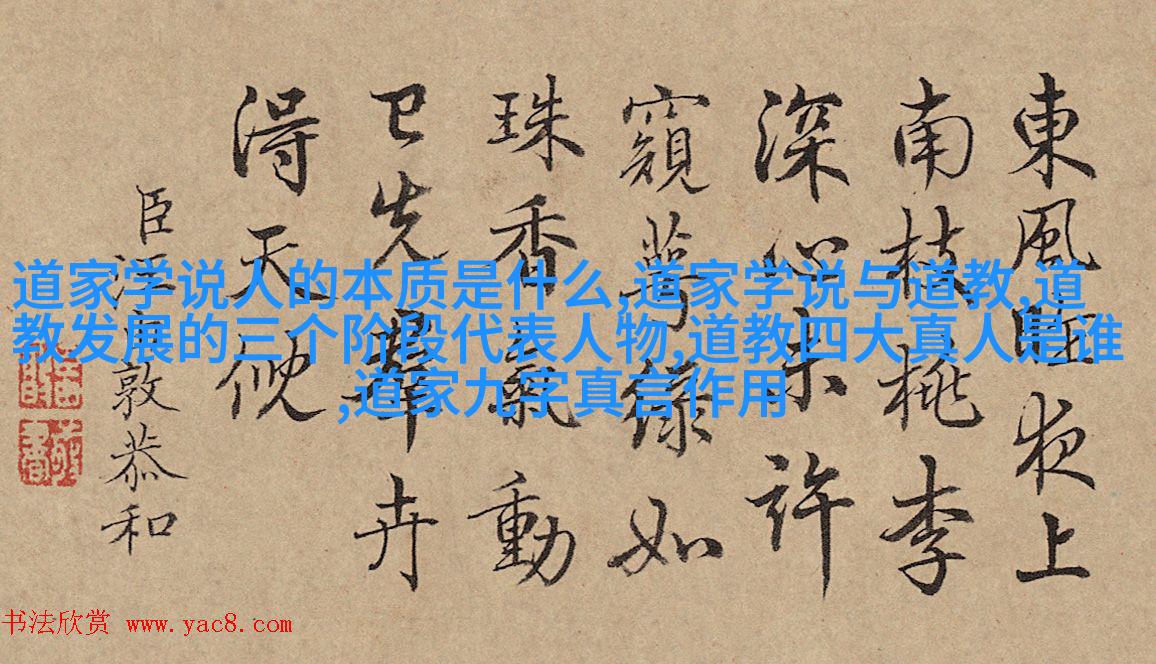 東風昨夜上
南枝桃李
深心未許
窺萼綠如
珠香氣動
已先羣卉
得天
臣汪由敦恭和
道家学说人的本质是什么,道家学说与道教,道
教发展的三个阶段代表人物,道教四大真人是谁
,道家九字真言作用
书法欣赏 www.yac8.com